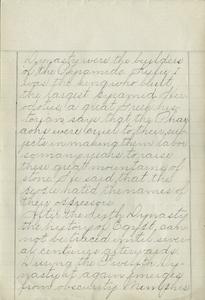 Dynasty were the builders
of the Pyramids. Khufu I
was the king who built
the largest Pyramid. Her-
odotus a great Greek his-
torian says that the Phar-
aohs were cruel to their sub-
jects in making them labor
so many years to raise
these great mountains of
stone. He said that the
people hated the names of
their oppressors.
After the sixth Dynasty
the history of Egypt can
not be traced until sever-
al centuries afterward.
During the twelfth Dy-
nasty it again emerges
from obscurity. Memphis